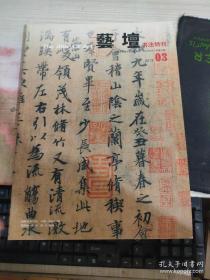 藝壇
书法特刊
03
九年歲在癸丑暮春之初會
會稽山陰之蘭亭脩稧事
賢畢至少長咸集此地
有峻領茂林脩竹又有清流激
湍暎帶左右引以為流觴曲水